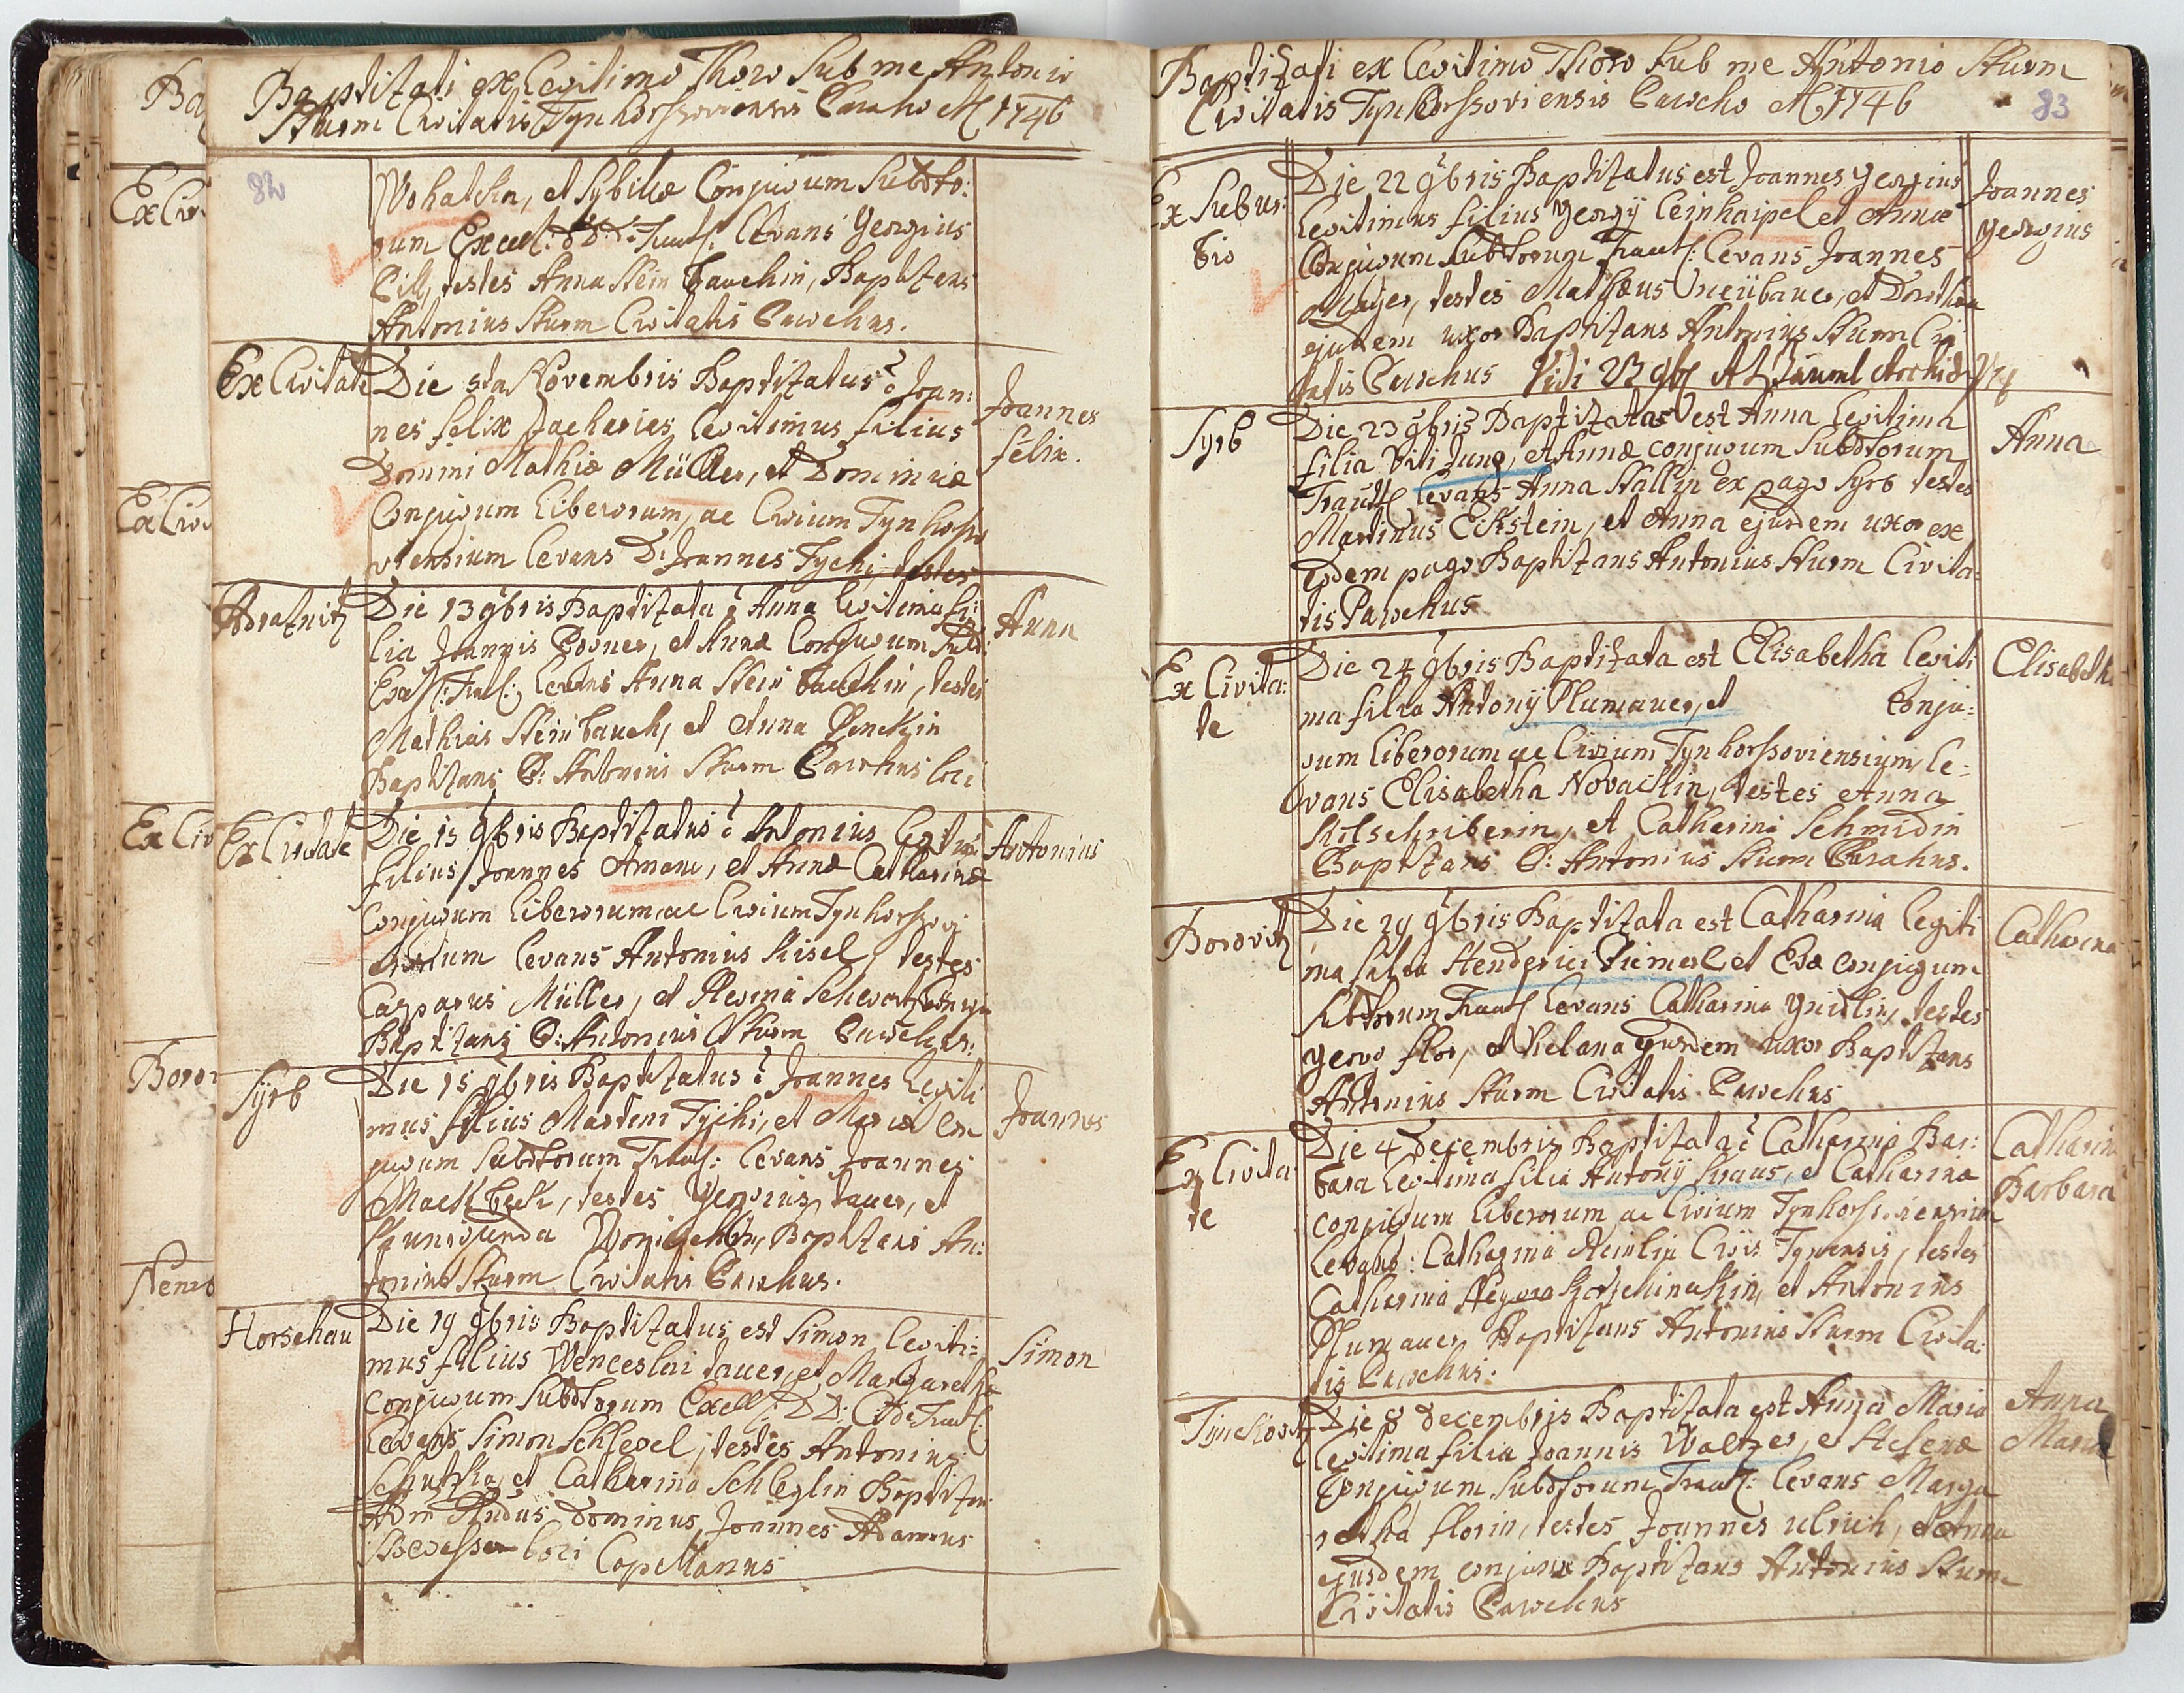 Baptizati ex Legitimo Thoro Sub me Antonio
Sturm Civitatis Tynhorssoviensis Parocho A 1746
82
Wohatska, et Sybillæ Conjugum Subdto:
rum Excell: D:D: Traut: Levans Georgius
Pill, testes Anna Steinbauchin, Baptizans
Antonius Sturm Civitatis Parochus.
Ex Civitate
Die 5ta Novembris Baptizatus ē Joan:
nes felix Zacharias Legitimus filius
Domini Mathiæ Müller, et Dominicæ
Conjugum Liberorum, ac Civium Tynhorsso
viensium Levans D: Joannes Tychi, testes
Joannes
felix.
Die 13 9bris Baptizata ē Anna legitima fi:
lia Joannis Porner, et Annæ Conjugum Subd:
Exc: Traut: Levans Anna Steinbauchin, testes
Mathias Steinbauch, et Anna
Baptizans P: Antonius Sturm Parochus loci
Anna
Ex Civitate
Die 15 9bris Baptizatus ē Antonius legitim
filius Joannes Amane, et Annæ Catharinæ
Conjugum Liberorum ac Civium Tynhorssovi
ensium Levans Antonius Kisel, testes
Casparus Müller, et Regina
Baptizans P: Antonius Sturm Parochus.
Antonius
Syrb
Die 15 9bris Baptizatus ē Joannes Legiti
mus filius Martini Tychi, et Mariæ Con
jugum Subdtorum Traut: Levans Joannes
Mackbeck, testes Georgius tauer, et
Kunigunda Baptizans An:
tonius Sturm Civitatis Parochus.
Joannes
Horschau
Die 19 9bris Baptizatus est Simon legiti:
mus filius Wenceslai tauer, et Margaretha
Conjugum Subdtorum Excell: D:D: C: de Traut:
Levans Simon Schlegel, testes Antonius
Schutzka, et Catharina Schleglin Baptizan
Adm Rndus Dominus Joannes Adamus
loci Capellanus
Simon
Baptizati ex Legitimo Thoro Sub me Antonio Sturm
Civitatis Tynhorssoviensis Parocho A 1746
83
Ex Subur:
bio
Die 22 9bris Baptizatus est Joannes Georgius
Legitimus filius Georgij Leinhaipel et Annæ
Conjugum Subdtorum Traut: Levans Joannes
Mayer, testes Mathæus Neübauer, et Dorothea
ejusdem uxor Baptizans Antonius Sturm Civi
tatis Parochus Vidi 23 9br
Joannes
Georgius
Syrb
Die 23 9bris Baptizata est Anna Legitima
filia Viti Jung, et Annæ conjugum Subdtorum
Traut: Levans Anna Stallin ex pago Syrb testes
Martinus Eckstein, et Anna ejusdem uxor ex
eodem pago Baptizans Antonius Sturm Civita:
tis Parochus
Anna
Ex Civita:
te
Die 24 9bris Baptizata est Elisabetha Legiti
ma filia Antonij Plumauer, et Conju:
gum Liberorum ac Civium Tynhorssoviensium, Le:
vans Elisabetha Novackin, testes Anna
et Catharina Schmidin
Baptizans P: Antonius Sturm Parochus.
Elisabeth
Borovitz
Die 29 9bris Baptizata est Catharina Legiti
ma filia Henderici et Evæ conjugum
Subdtorum Traut Levans Catharina testes
Georg flor, et Helana ejusdem uxor Baptizans
Antonius Sturm Civitatis Parochus
Catharina
Ex Civita
te
Die 4 Decembris Baptizata ē Catharina Bar:
bara Legitima filia Antonij Kraus, et Catharinæ
conjugum Liberorum ac Civium Tynhorssoviensium
Levans: Catharina Civis Tynensis, testes
Catharina et Antonius
Plumauer Baptizans Antonius Sturm Civita:
tis Parochus.
Catharin
Barbara
Die 8 Decembris Baptizata est Anna Maria
Legitima filia Joannis Waltzer, et Helenæ
Conjugum Subdtorum Traut: Levans Marga
retha florin, testes Joannes ulrich, et Anna
ejusdem conjunx Baptizans Antonius Sturm
Civitatis Parochus
Anna
Maria